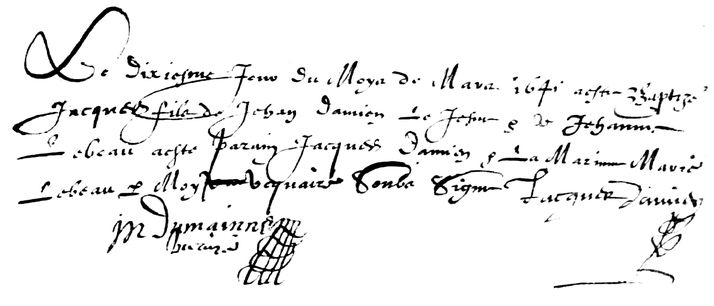 Le dixiesme Jour du Moys de Mars 1641 a este Baptize
Jacques fils de Jehan Damien Le Jeune & de Jehanne
Lebeau a este parain Jacques Damien & La Marinne Marie
Lebeau & Moy vicquaire Soubs Signe Jacques Damien
M Dumainne